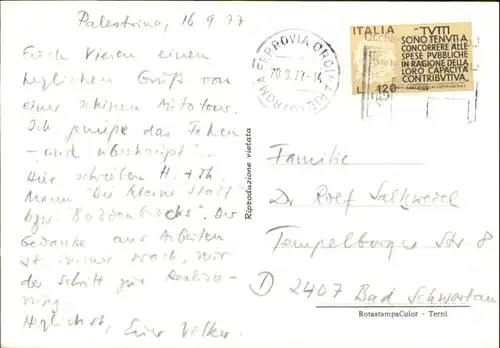 Palestrina, 16 9 77
Euch Vieren einen
herzlichen Gruß von
einer schönen Autotour.
Ich genieße das Fahren
- und überhaupt"...
Hier schrieben H. + Th.
Mann "Die kleine Stadt
bzw. Buddenbrocks". Der
Gedanke ans Arbeiten
ist immer wach, nur
der Schritt zur Realisie-
rung.
Herzlichst, Euer Volker.
Riproduzione vietata
ROMA FERROVIA
20.9.77-14
ITALIA
TUTTI
SONO TENUTI A
CONCORRERE ALLE
SPESE PUBBLICHE
IN RAGIONE DELLA
LORO CAPACITÀ
CONTRIBUTIVA.
L. 120
Familie
Dr Rolf Saltzwedel
Tempelberger Str 8
D 2407 Bad Schwartau
RotastampaColor - Terni